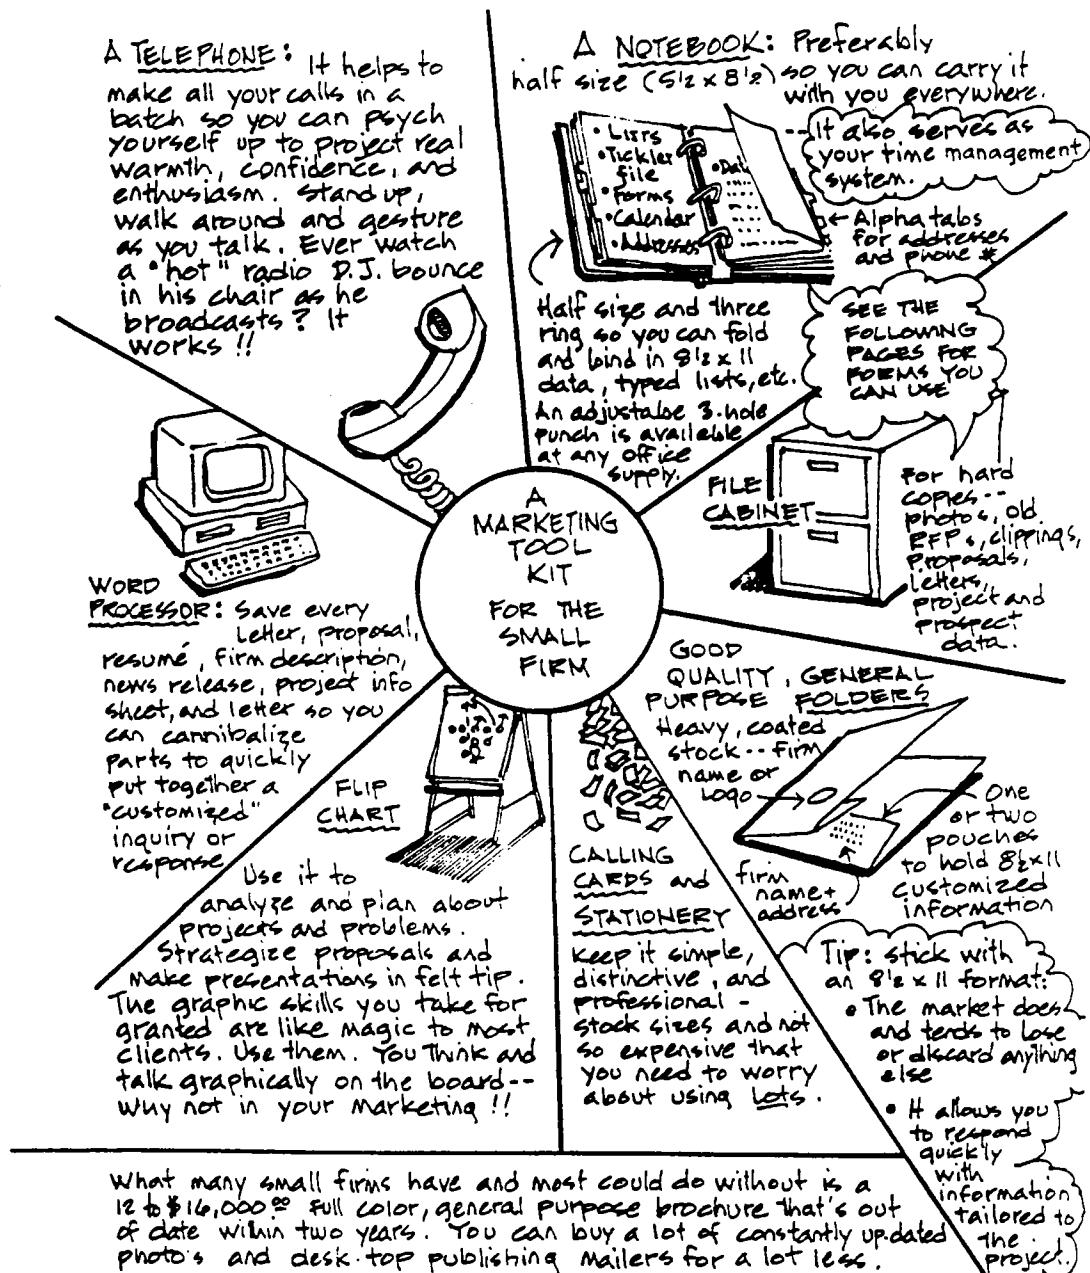 A TELEPHONE: It helps to
make all your calls in a
batch so you can psych
yourself up to project real
warmth, confidence, and
enthusiasm. Stand up,
walk around and gesture
as you talk. Ever watch
a "hot" radio D.J. bounce
in his chair as he
broadcasts? It
works!!
A NOTEBOOK: Preferably
half size (5½ x 8½) so you can carry it
with you everywhere.
--It also serves as
your time management
system.
• Lists
• Tickler
file
• Forms
• Calendar
• Addresses
• Dat
← Alpha tabs
for addresses
and phone #
Half size and three
ring so you can fold
and bind in 8½ x 11
data, typed lists, etc.
An adjustabe 3-hole
punch is available
at any office
supply.
SEE THE
FOLLOWING
PAGES FOR
FORMS YOU
CAN USE
FILE
CABINET
For hard
copies--
photos, old
RFPs, clippings,
proposals,
letters,
project and
prospect
data.
A
MARKETING
TOOL
KIT
FOR THE
SMALL
FIRM
WORD
PROCESSOR: Save every
letter, proposal,
resumé, firm description,
news release, project info
sheet, and letter so you
can cannibalize
parts to quickly
put together a
"customized"
inquiry or
response
FLIP
CHART
Use it to
analyze and plan about
projects and problems.
Strategize proposals and
make presentations in felt tip.
The graphic skills you take for
granted are like magic to most
clients. Use them. You think and
talk graphically on the board--
Why not in your marketing!!
CALLING
CARDS and
STATIONERY
Keep it simple,
distinctive, and
professional -
stock sizes and not
so expensive that
you need to worry
about using lots.
GOOD
QUALITY, GENERAL
PURPOSE FOLDERS
Heavy, coated
stock -- firm
name or
Logo
One
or two
pouches
to hold 8½x11
customized
information
firm
name+
address
Tip: stick with
an 8½ x 11 format:
• The market does
and tends to lose
or discard anything
else
• It allows you
to respond
quickly
with
information
tailored to
the
project.
What many small firms have and most could do without is a
12 to $16,000.00 full color, general purpose brochure that's out
of date within two years. You can buy a lot of constantly updated
photo's and desk-top publishing mailers for a lot less.